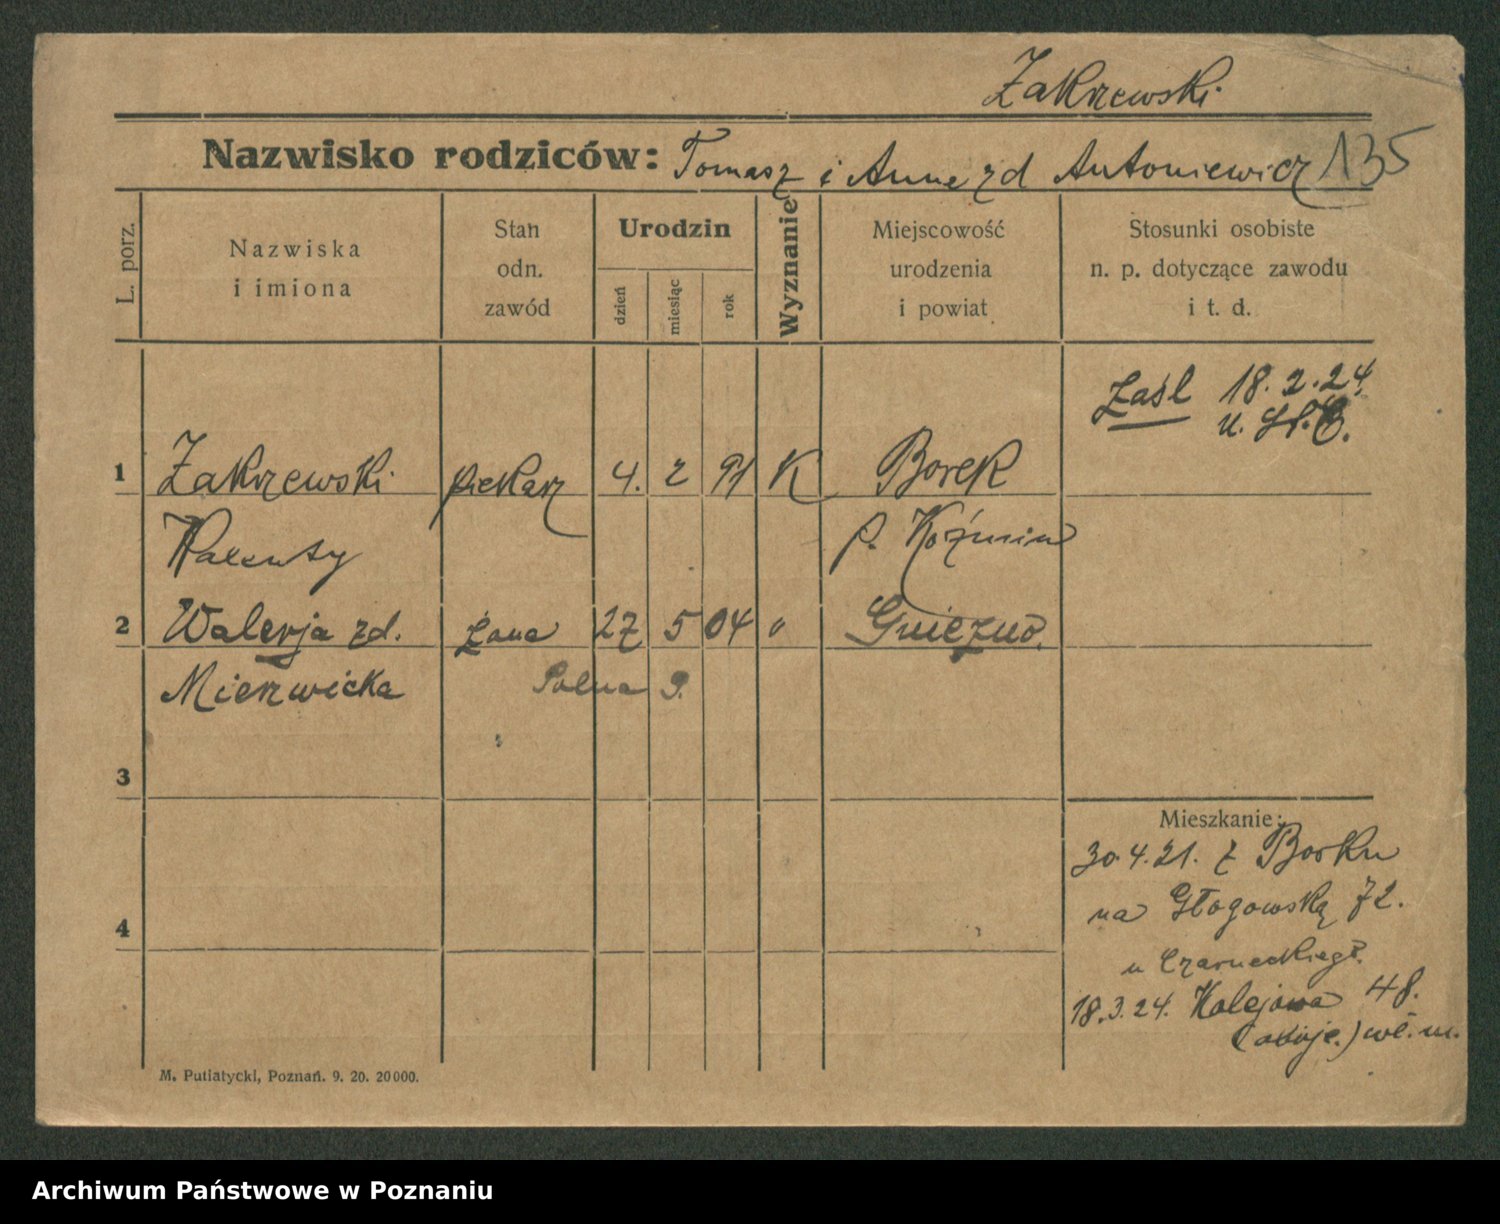 Zakrzewski
Nazwisko rodziców: Tomasz i Anna zd Antoniewicz 135
L. porz.
Nazwiska
i imiona
Stan
odn.
zawód
Urodzin
dzień
miesiąc
rok
Wyznanie
Miejscowość
urodzenia
i powiat
Stosunki osobiste
n. p. dotyczące zawodu
i t. d.
Zaśl 18.2.24
u. St.C.
1 Zakrzewski piekarz 4. 2 91 K Borek
Walenty p. Koźmin
2 Walerja zd. żona 27 5 04 " Gniezno.
Mierzwicka Polna 9.
3
4
Mieszkanie:
30.4.21. z Borku
na Głogowską 72.
u Czarneckiego.
18.3.24. Kolejowa 48.
(oboje.) wł. m.
M. Putiatycki, Poznań. 9. 20. 20000.
Archiwum Państwowe w Poznaniu